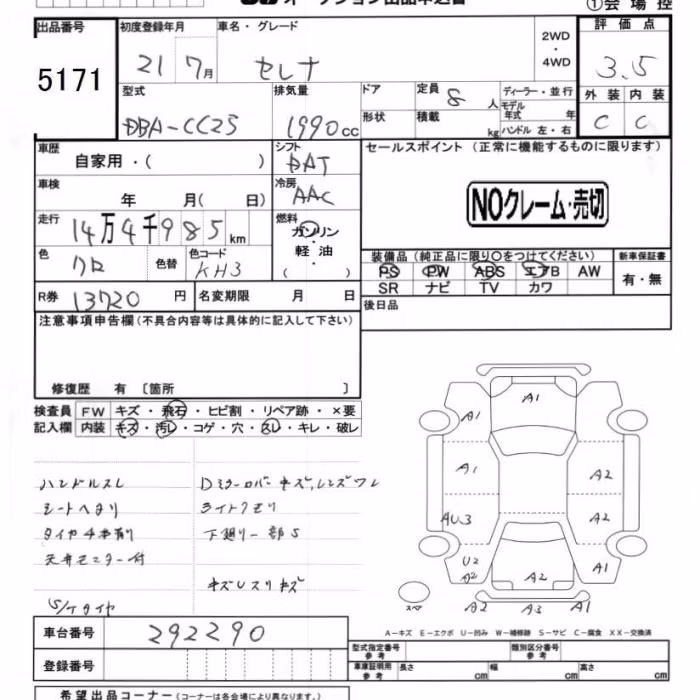 オークション出品申込書
①会場控
出品番号
5171
初度登録年月
21 7月
車名・グレード
セレナ
2WD
・
4WD
評価点
3.5
型式
DBA-CC25
排気量
1990cc
ドア
形状
定員 8 人
積載 kg
ディーラー・並行
モデル年式 年
ハンドル 左・右
外装 内装
C C
車歴
自家用・( )
シフト
DAT
セールスポイント (正常に機能するものに限ります)
車検
年 月( 日)
冷房
AAC
NOクレーム・売切
走行
14万4千985km
燃料
ガソリン
・
軽油
( )
色
クロ
色替
色コード
KH3
装備品 (純正品に限り○をつけてください)
新車保証書
PS PW ABS エアB AW
SR ナビ TV カワ
有・無
R券 13720円
名変期限 月 日
後日品
注意事項申告欄 (不具合内容等は具体的に記入して下さい)
修復歴 有 〔箇所 〕
検査員記入欄
FW キズ・飛石・ヒビ割・リペア跡・×要
内装 キズ・汚レ・コゲ・穴・スレ・キレ・破レ
ハンドルスレ
シートヘタリ
タイヤ4本有り
天井モニター付
S/Tタイヤ
Dミラーカバーキズ,レンズワレ
ライトクモリ
下廻り一部S
キズUスリキズ
A1
A1
A1
A2
AU3
A2
U2
A2
A2
A1
スペア
A2
A3
A1
A-キズ E-エクボ U-凹み W-補修跡 S-サビ C-腐食 XX-交換済
車台番号 292290
登録番号
型式指定番号 参考
類別区分番号 参考
車庫証明用 参考
長さ cm
幅 cm
高さ cm
希望出品コーナー (コーナーは各会場により異なります。)